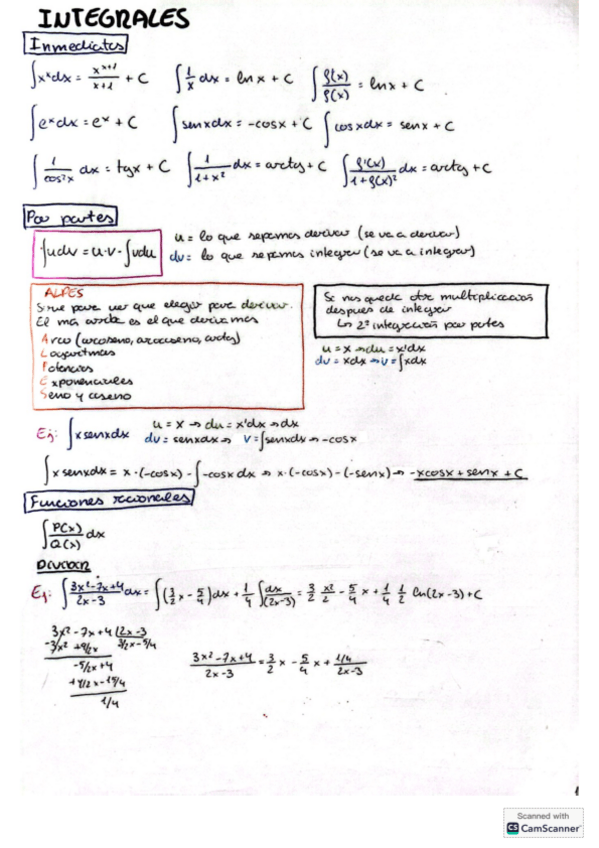 INTEGRALES
Inmediatas
∫x^x dx = x^(x+1)/(x+1) + C   ∫1/x dx = ln x + C   ∫f'(x)/f(x) = ln x + C
∫e^x dx = e^x + C   ∫sen x dx = -cos x + C   ∫cos x dx = sen x + C
∫1/cos²x dx = tg x + C   ∫1/(1+x²) dx = arctg + C   ∫f'(x)/(1+f(x)²) dx = arctg + C
Por partes
∫udv = u·v - ∫vdu
u = lo que sepamos derivar (se va a derivar)
dv = lo que sepamos integrar (se va a integrar)
ALPES
Sirve para ver que elegir para derivar.
El más arriba es el que derivamos
Arco (arcoseno, arcocoseno, arctg)
Logaritmos
Potencias
Exponenciales
Seno y coseno
Si nos queda otra multiplicación
después de integrar
2ª integración por partes
u = x → du = x'dx
dv = xdx → v = ∫xdx
Ej: ∫x senx dx
u = x → du = x'dx → dx
dv = senxdx → v = ∫senxdx → -cosx
∫x senxdx = x·(-cosx) - ∫-cosx dx → x·(-cosx) - (-senx) → -xcosx + senx + C
Funciones racionales
∫P(x)/Q(x) dx
Dividir
Ej: ∫(3x²-7x+4)/(2x-3) dx = ∫(3/2 x - 5/4)dx + 1/4 ∫dx/(2x-3) = 3/2 x²/2 - 5/4 x + 1/4 1/2 ln(2x-3) + C
3x² - 7x + 4 |2x-3
-3x² + 9/2x   3/2x - 5/4
-5/2x + 4
+5/2x - 15/4
1/4
(3x²-7x+4)/(2x-3) = 3/2 x - 5/4 x + (1/4)/(2x-3)
1
Scanned with
CS CamScanner